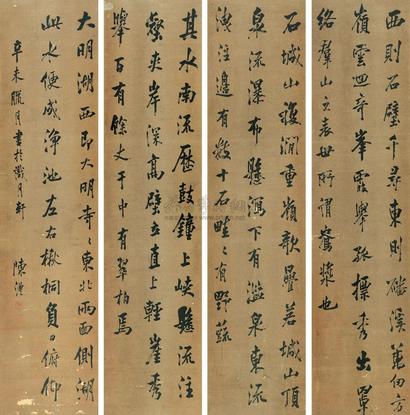 西則石壁千尋東則磻溪萬仞方
嶺雲迴奇峯霞舉孤標秀出罩
絡羣山之表世所謂鴦漿也
石城山複澗重嶺欹疊若城山頂
泉流瀑布懸瀉下有濫泉東流
洩注邊有數十石畦畦有野蔬
其水南流歷鼓鐘上峽懸流注
壑夾岸深高壁立直上輕崖秀
舉百有餘丈于中有翠柏焉
大明湖西即大明寺寺東北兩面側湖
此水便成淨池左右楸桐負日俯仰
辛未臘月書於識月軒 陳